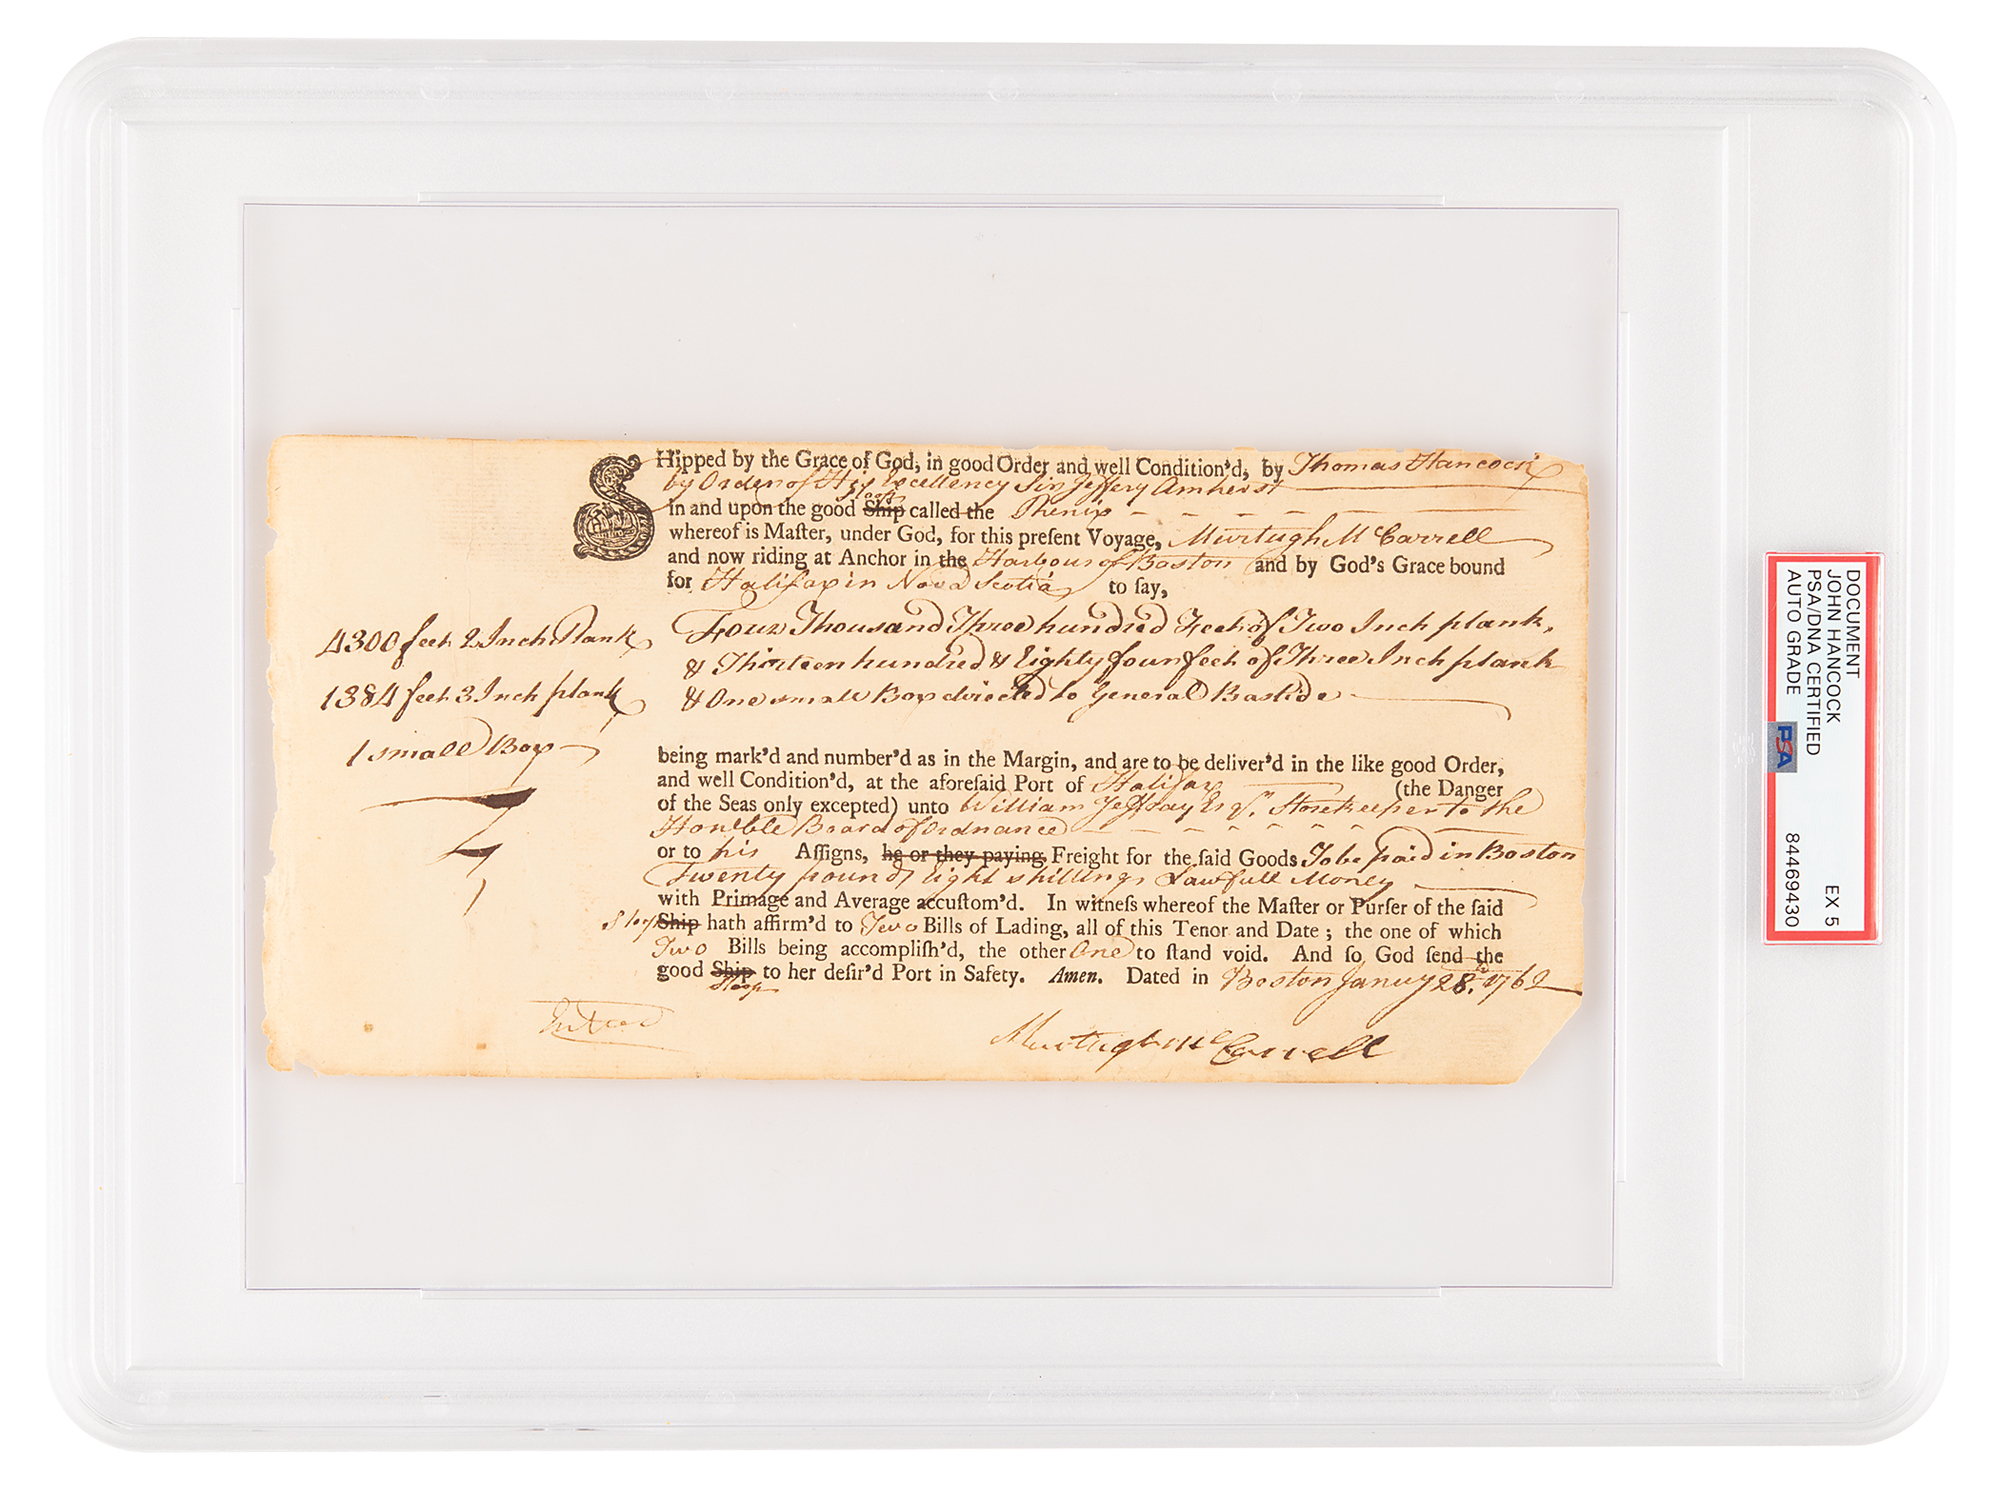 SHipped by the Grace of God, in good Order and well Condition'd, by Thomas Hancock
by Order of His Excellency Sir Jeffery Amherst
in and upon the good Ship Sloop called the Phenix
whereof is Maſter, under God, for this preſent Voyage, Murtugh Mc Carrell
and now riding at Anchor in the Harbour of Boston and by God's Grace bound
for Halifax in Nova Scotia to ſay,
4300 feet 2 Inch Plank
1384 feet 3 Inch plank
1 small Box
Four Thousand Three hundred Feet of Two Inch plank,
& Thirteen hundred & Eighty four feet of Three Inch plank
& One small Box directed to General Bastide
being mark'd and number'd as in the Margin, and are to be deliver'd in the like good Order,
and well Condition'd, at the aforeſaid Port of Halifax (the Danger
of the Seas only excepted) unto William Jeffray Esqr. Storekeeper to the
Honble Board of Ordnance
or to his Aſſigns, he or they paying Freight for the ſaid Goods To be paid in Boston
Twenty pounds Eight shillings Lawfull Money
with Primage and Average accuſtom'd. In witneſs whereof the Maſter or Purſer of the ſaid
Sloop Ship hath affirm'd to Two Bills of Lading, all of this Tenor and Date; the one of which
Two Bills being accompliſh'd, the other One to ſtand void. And ſo God ſend the
good Ship to her deſir'd Port in Safety. Amen. Dated in Boston Janury 28th. 1762
Sloop
Murtugh Mc Carrell
DOCUMENT
JOHN HANCOCK
PSA/DNA CERTIFIED
AUTO GRADE
EX 5
84469430
PSA